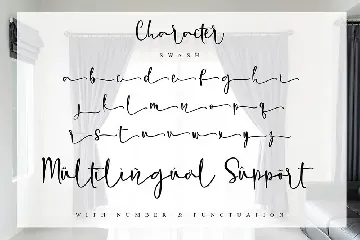 Character
SWASH
a b c d e f g h i
j k l m n o p q
r s t u v w x y z
Múltilingual Süppört
WITH NUMBER & PUNCTUATION